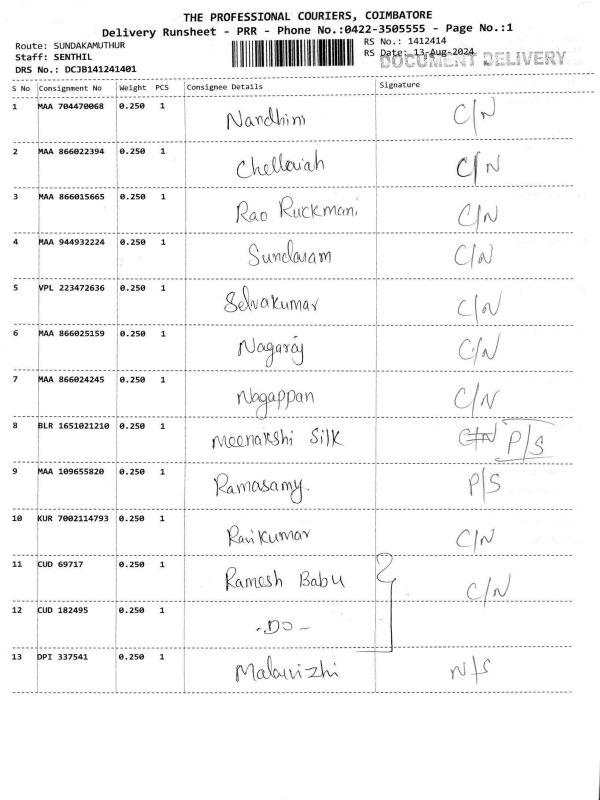 THE PROFESSIONAL COURIERS, COIMBATORE
Delivery Runsheet - PRR - Phone No.:0422-3505555 - Page No.:1
Route: SUNDAKAMUTHUR
Staff: SENTHIL
DRS No.: DCJB141241401
RS No.: 1412414
RS Date: 13-Aug-2024
DOCUMENT DELIVERY
S No Consignment No Weight PCS Consignee Details Signature
1 MAA 704470068 0.250 1 Nandhini C/N
2 MAA 866022394 0.250 1 Chellaiah C/N
3 MAA 866015665 0.250 1 Rao Ruckmani C/N
4 MAA 944932224 0.250 1 Sundaram C/N
5 VPL 223472636 0.250 1 Selvakumar C/N
6 MAA 866025159 0.250 1 Nagaraj C/N
7 MAA 866024245 0.250 1 Nagappan C/N
8 BLR 1651021210 0.250 1 Meenakshi Silk C/N P/S
9 MAA 109655820 0.250 1 Ramasamy. P/S
10 KUR 7002114793 0.250 1 Ravikumar C/N
11 CUD 69717 0.250 1 Ramesh Babu C/N
12 CUD 182495 0.250 1 -DO-
13 DPI 337541 0.250 1 Malarvizhi N/S